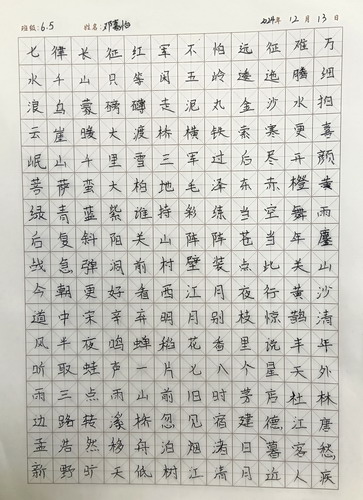 班级:6.5 姓名:邓 2024年12月13日
七律长征红军不怕远征难万
水千山只等闲五岭逶迤腾细
浪乌蒙磅礴走泥丸金沙水拍
云崖暖大渡桥横铁索寒更喜
岷山千里雪三军过后尽开颜
菩萨蛮大柏地毛泽东赤橙黄
绿青蓝紫谁持彩练当空舞雨
后复斜阳关山阵阵苍当年鏖
战急弹洞前村壁装点此关山
今朝更好看西江月夜行黄沙
道中宋辛弃明月别枝惊鹊清
风半夜鸣蝉稻花香里说丰年
听取蛙声一片七八个星天外
雨三点雨山前旧时茅店社林
边路转溪桥忽见宿建德江唐
孟浩然移舟泊烟渚日暮客愁
新野旷天低树江清月近人疾